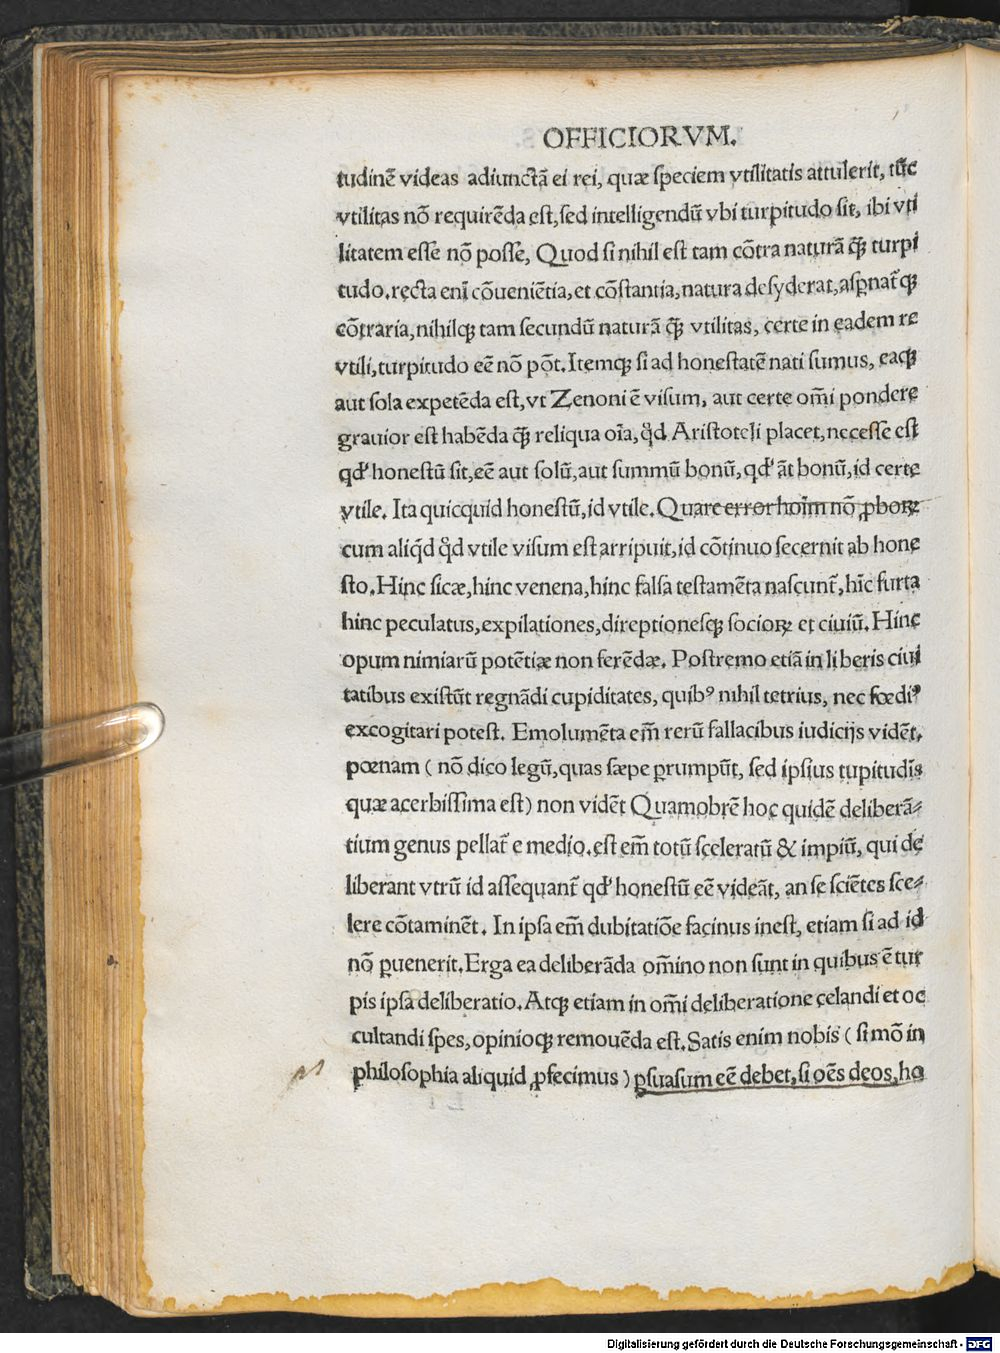 OFFICIORVM.
tudinē videas adiunctā ei rei, quæ speciem vtilitatis attulerit, tūc
vtilitas nō requirēda est, sed intelligendū vbi turpitudo sit, ibi vti
litatem esse nō posse, Quod si nihil est tam cōtra naturā q̄ꝫ turpi
tudo. recta eni cōueniētia, et cōstantia, natura desyderat, aspnat᷑qꝫ
cōtraria, nihilqꝫ tam secundū naturā q̄ꝫ vtilitas, certe in eadem re
vtili, turpitudo eē nō pōt. Itemqꝫ si ad honestatē nati sumus, eaqꝫ
aut sola expetēda est, vt Zenoni ē visum, aut certe om̄i pondere
grauior est habēda q̄ꝫ reliqua oīa, qd̄ Aristoteli placet, necesse est
qd' honestū sit, eē aut solū, aut summū bonū, qd' āt bonū, id certe
vtile. Ita quicquid honestū, id vtile. Quare error hoīm nō ꝓboꝝ
cum aliq̇d qd̄ vtile visum est arripuit, id cōtinuo secernit ab hone
sto. Hinc sicæ, hinc venena, hinc falsa testamēta nascunt᷑, hīc furta
hinc peculatus, expilationes, direptionesqꝫ socioꝝ et ciuiū. Hinc
opum nimiarū potētiæ non ferēdæ. Postremo etiā in liberis ciui
tatibus existūt regnādi cupiditates, quibꝰ nihil tetrius, nec fœdiꝰ
excogitari potest. Emolumēta em̄ rerū fallacibus iudicijs vidēt,
pœnam ( nō dico legū, quas sæpe ꝑrumpūt, sed ipsius tupitudīs
quæ acerbissima est) non vidēt Quamobrē hoc quidē deliberā⸗
tium genus pellat᷑ e medio. est em̄ totū sceleratū & impiū, qui de
liberant vtrū id assequant᷑ qd' honestū eē videāt, an se sciētes sce⸗
lere cōtaminēt. In ipsa em̄ dubitatiōe facinus inest, etiam si ad id
nō ꝑuenerit. Erga ea deliberāda om̄ino non sunt in quibus ē tur
pis ipsa deliberatio. Atqꝫ etiam in om̄i deliberatione celandi et oc
cultandi spes, opinioqꝫ remouēda est. Satis enim nobis ( si mō in
philosophia aliquid ꝓfecimus ) ꝑsuasum eē debet, si oēs deos, ho
Digitalisierung gefördert durch die Deutsche Forschungsgemeinschaft - DFG